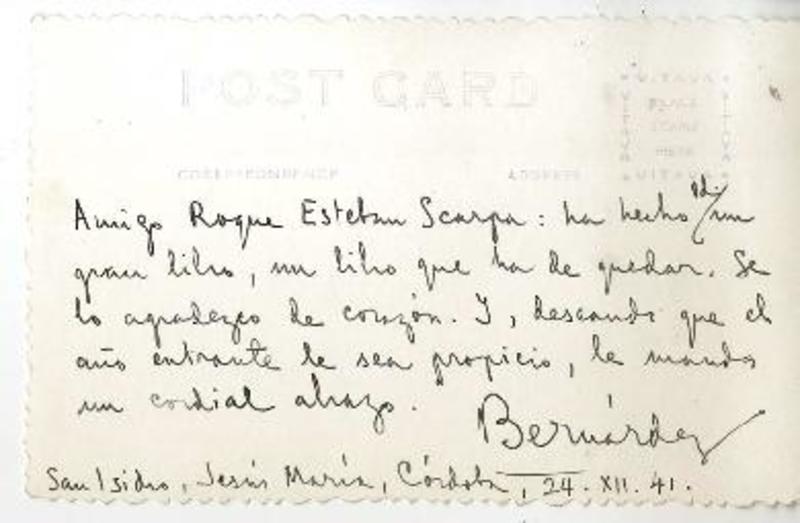 POST CARD
VITAVA
PLACE
STAMP
HERE
VITAVA
CORRESPONDENCE ADDRESS
Amigo Roque Esteban Scarpa: ha hecho Ud. un
gran libro, un libro que ha de quedar. Se
lo agradezco de corazón. Y, deseando que el
año entrante le sea propicio, le mando
un cordial abrazo.
Bernárdez
San Isidro, Jesús María, Córdoba, 24. XII. 41.